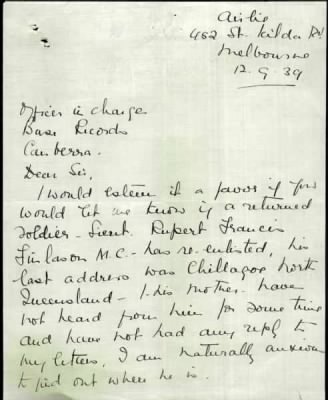 Airlie
452 St. Kilda Rd
Melbourne
12.9.39
Officer in charge
Base Records
Canberra.
Dear Sir,
I would esteem it a favor if you
would let me know if a returned
soldier - Lieut. Rupert Francis
Finlason M.C. - has re-enlisted, his
last address was Chillagoe North
Queensland - I - his mother - have
not heard from him for some time
and have not had any reply to
my letters, I am naturally anxious
to find out where he is.